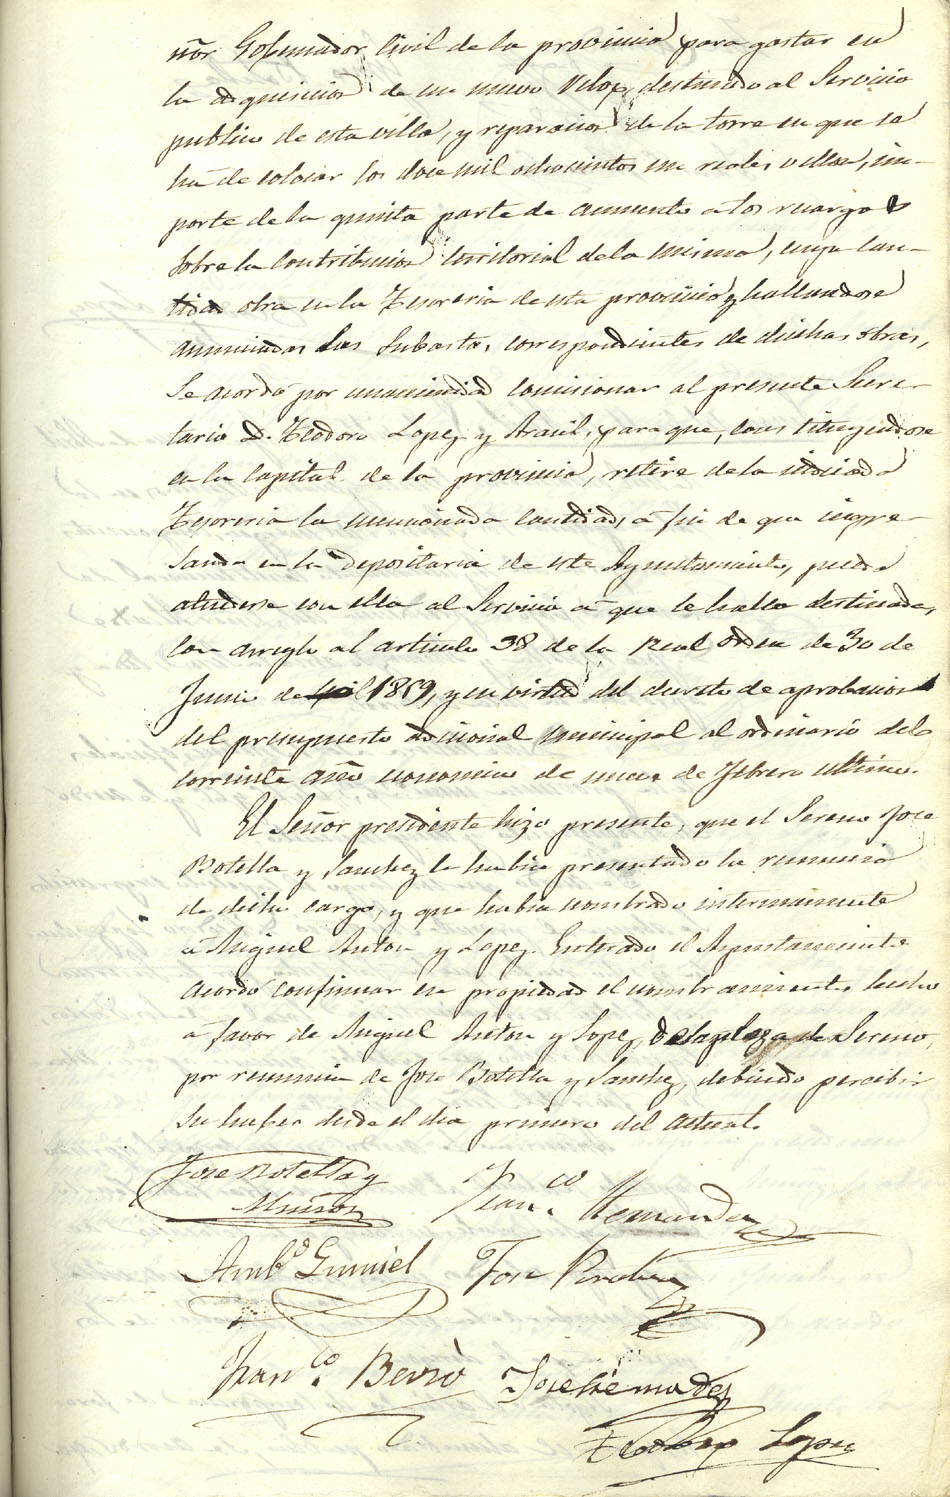 ñor Gobernador Civil de la provincia para gastar en
la adquisicion de un nuevo Reloz, destinado al Servicio
publico de esta villa, y reparacion de la torre en que se
ha de colocar los doce mil ochocientos un reales vellon, im-
porte de la quinta parte de aumento a los recargos
sobre la Contribucion territorial de la misma, cuya can-
tidad obra en la Tesoreria de esta provincia, y hallandose
anunciadas las Subastas, correspondientes de dichas obras,
Se acordó por unanimidad comisionar al presente Secre-
tario D. Teodoro Lopez y Arauil, para que, constituyendose
en la Capital de la provincia, retire de la indicada
Tesoreria la mencionada cantidad, a fin de que ingre-
sando en la depositaria de este Ayuntamiento, pueda
atenderse con ella al Servicio á que se halla destinada,
con arreglo al articulo 38 de la Real Orden de 30 de
Junio de 1859, y en virtud del decreto de aprobacion
del presupuesto adicional municipal al ordinario del
corriente año economico de nueve de Febrero ultimo.
El Señor presidente hizo presente, que el Sereno Jose
Botella y Sanchez le habia presentado la renuncia
de dicho cargo, y que habia nombrado interinamente
á Miguel Anton y Lopez. Enterado el Ayuntamiento
acordó confirmar en propiedad el nombramiento hecho
a favor de Miguel Anton y Lopez, de la plaza de Sereno,
por renuncia de Jose Botella y Sanchez, debiendo percibir
su haber desde el dia primero del actual.
Jose Botella y
Muñoz
Franco Hernandez
Ambo Gumiel
Jose
Franco Bevià
Jose Hernandez
Teodoro Lopez